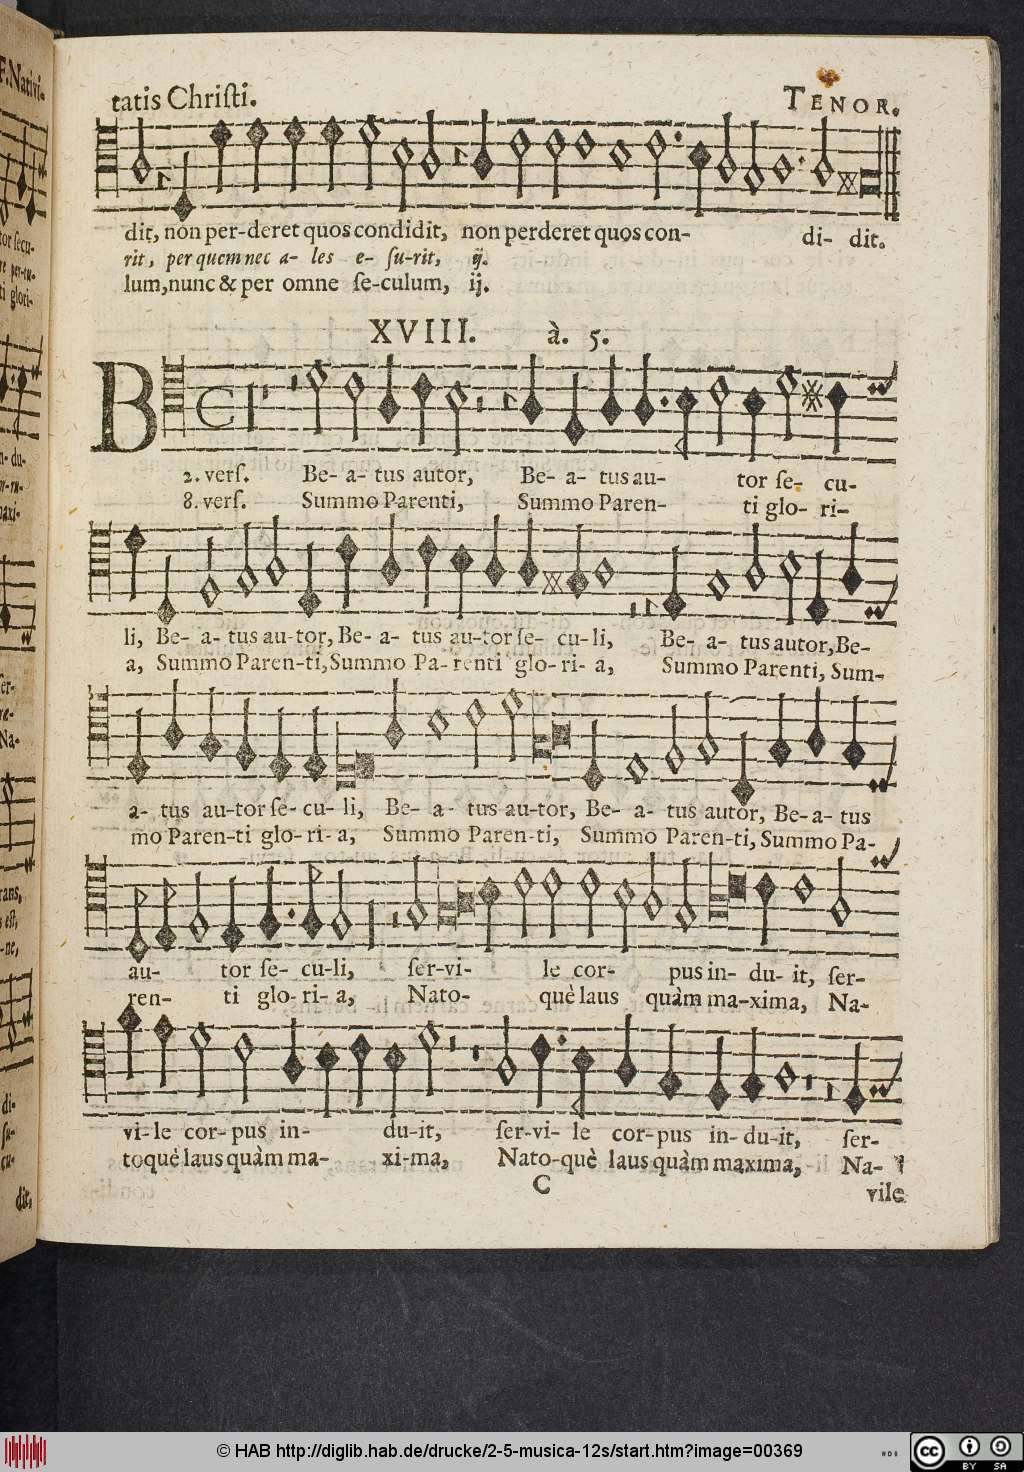 tatis Chriſti.
TENOR.
dit, non per-deret quos condidit, non perderet quos con- di- dit.
rit, per quem nec a- les e- ſu-rit, ij.
lum, nunc & per omne ſe-culum, ij.
XVIII. à. 5.
B
2. verſ. Be- a- tus autor, Be- a- tus au- tor ſe- cu-
8. verſ. Summo Parenti, Summo Paren- ti glo- ri-
li, Be- a- tus au-tor, Be- a- tus au-tor ſe- cu- li, Be- a- tus autor, Be-
a, Summo Paren-ti, Summo Pa- renti glo- ri- a, Summo Parenti, Sum-
a- tus au-tor ſe- cu- li, Be- a- tus au-tor, Be- a- tus autor, Be- a- tus
mo Paren-ti glo- ri- a, Summo Paren-ti, Summo Paren-ti, Summo Pa-
au- tor ſe- cu-li, ſer-vi- le cor- pus in- du- it, ſer-
ren- ti glo- ri- a, Nato- què laus quàm ma-xima, Na-
vi- le cor- pus in- du-it, ſer-vi- le cor-pus in-du-it, ſer-
toquè laus quàm ma- xi-ma, Nato-què laus quàm maxima, Na-
C
vile
F. Nativi-
© HAB http://diglib.hab.de/drucke/2-5-musica-12s/start.htm?image=00369
cc BY SA